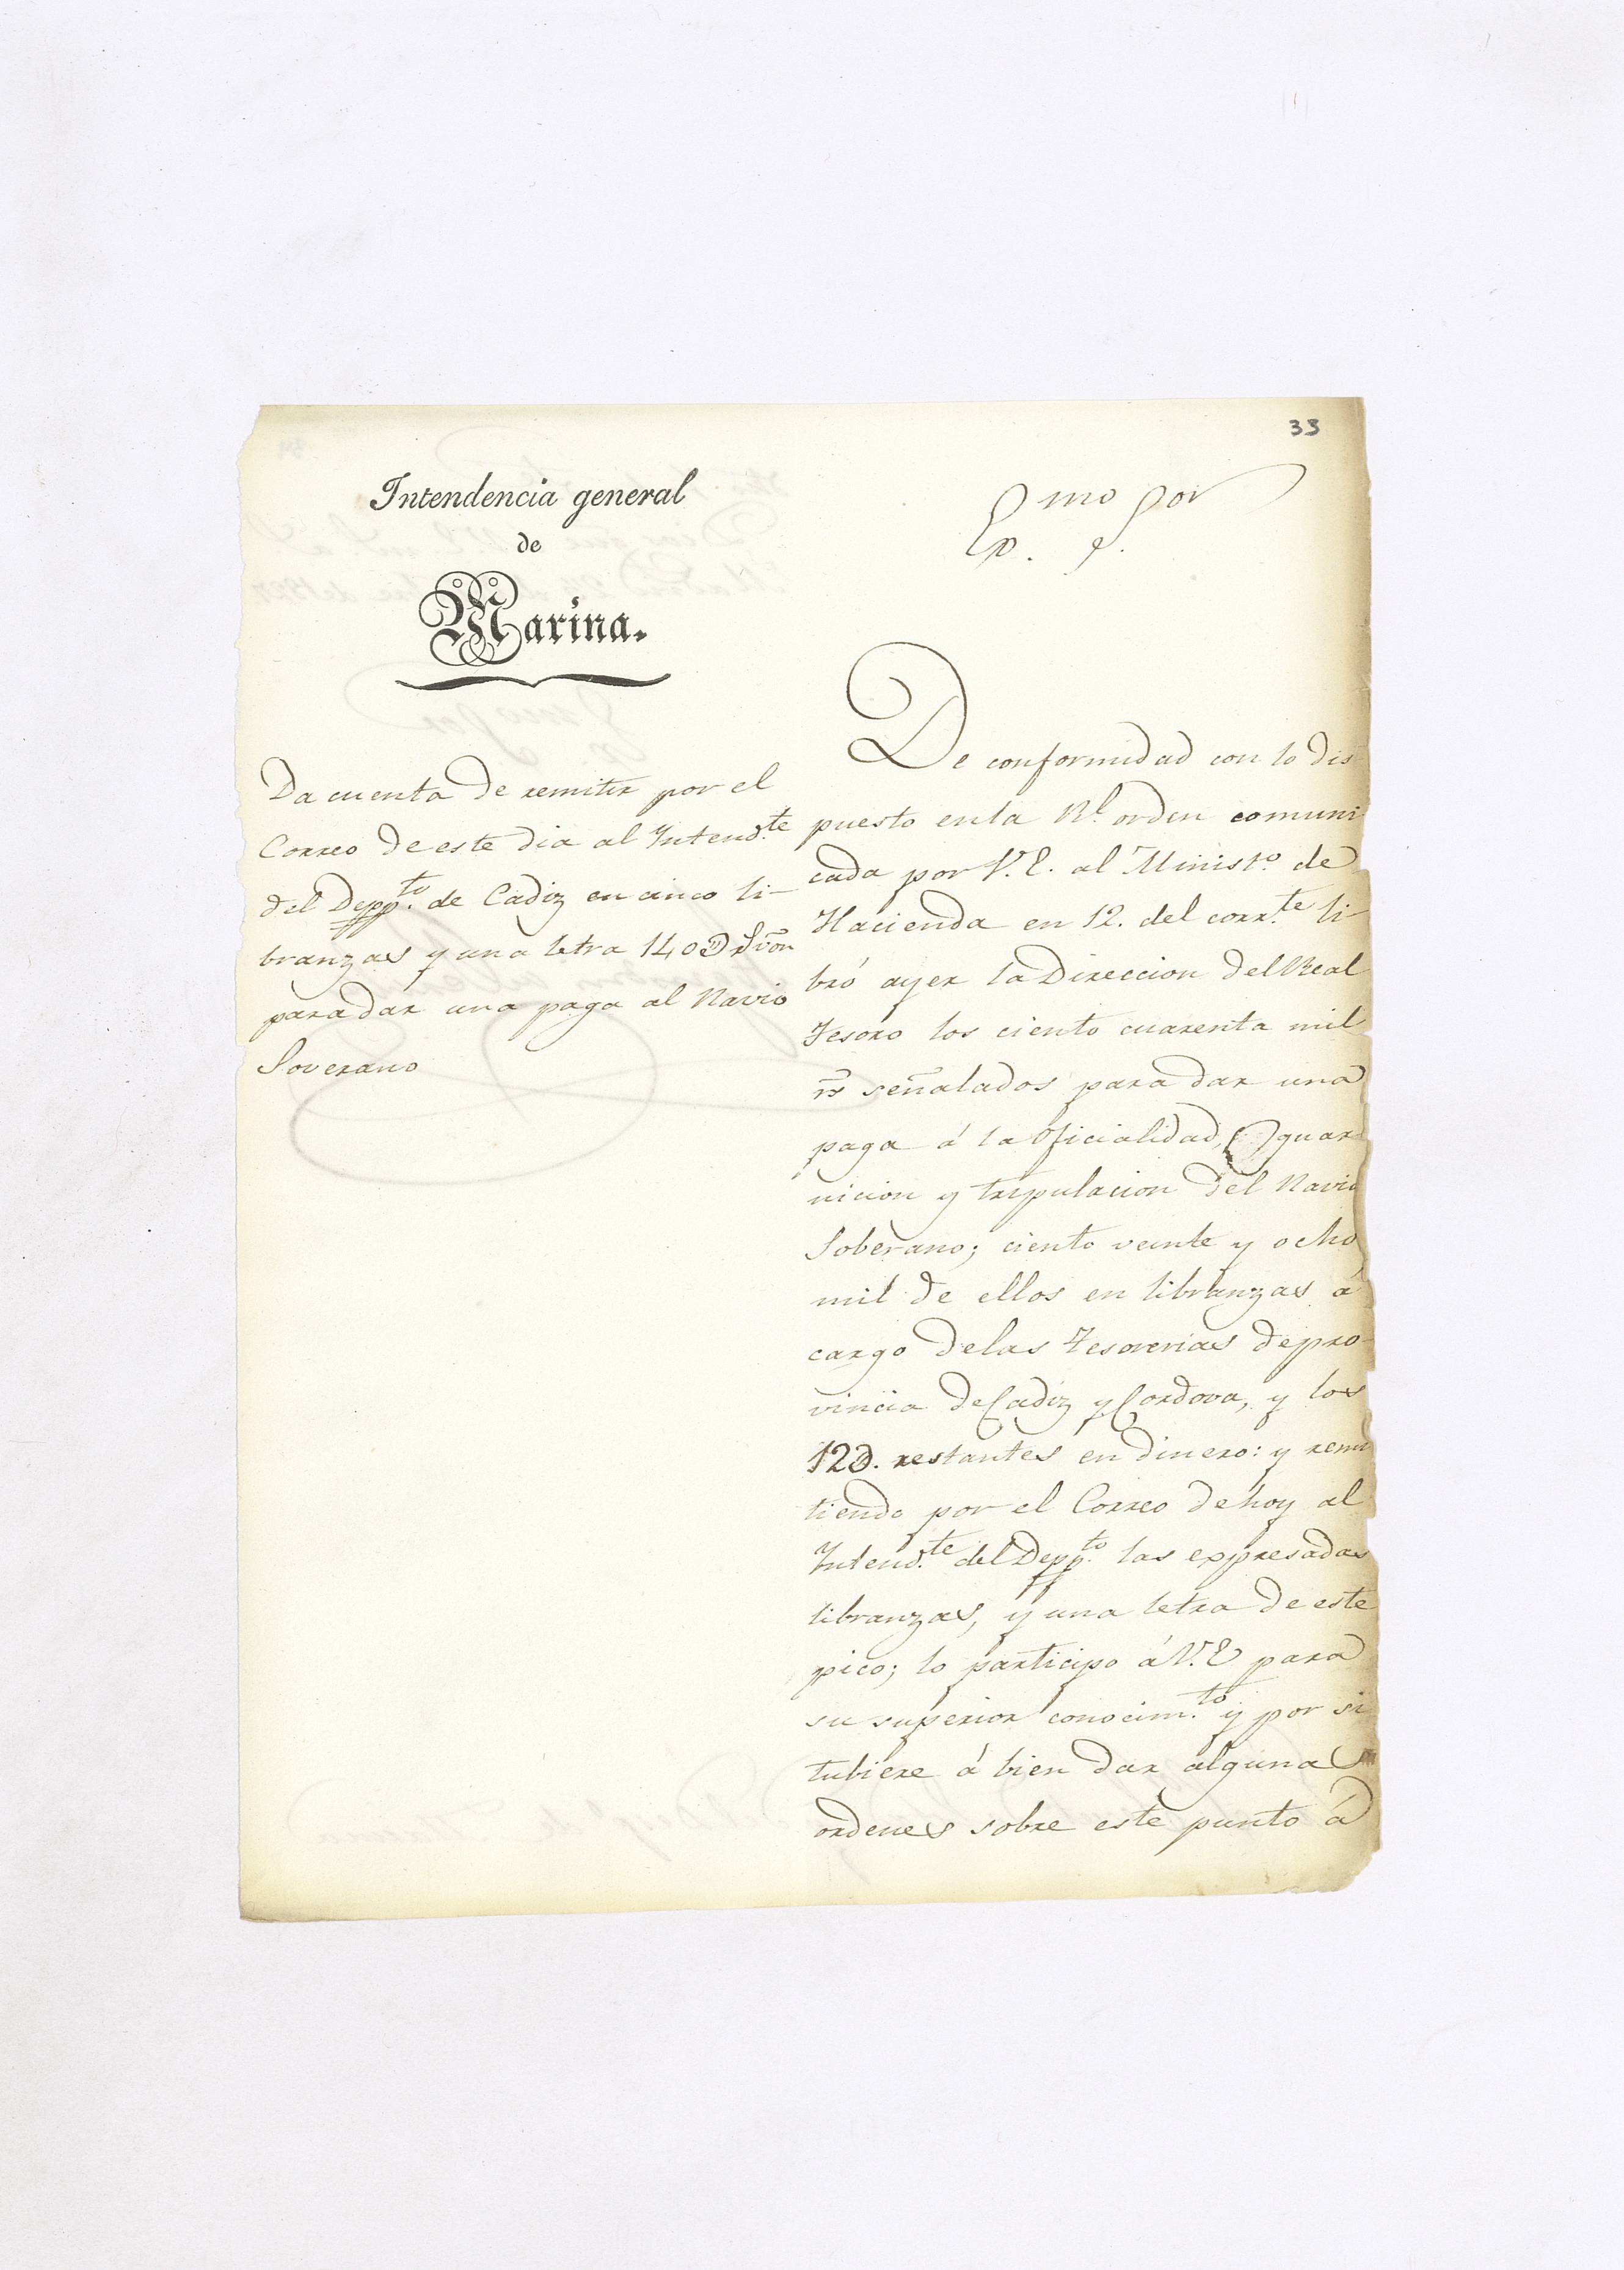 33
Intendencia general
de
Marina.
Exmo Sor
Da cuenta de remitir por el
Correo de este dia al Intend.te
del Depp.to de Cadiz en cinco li-
branzas y una letra 140D rs von
para dar una paga al Navio
Soverano
De conformidad con lo dis
puesto en la Rl. orden comuni
cada por V.E. al Minist.o de
Hacienda en 12. del corr.te li-
bró ayer la Direccion del Real
Tesoro los ciento cuarenta mil
rs señalados para dar una
paga á la Oficialidad, guar
nicion y tripulacion del Navio
Soberano; ciento veinte y ocho
mil de ellos en libranzas á
cargo de las Tesorerias de pro-
vincia de Cadiz y Cordova, y los
12D. restantes en dinero: y remi
tiendo por el Correo de hoy al
Intend.te del Depp.to las expresadas
libranzas, y una letra de este
pico; lo participo á V.E para
su superior conocim.to y por si
tubiere á bien dar algunas
ordenes sobre este punto á